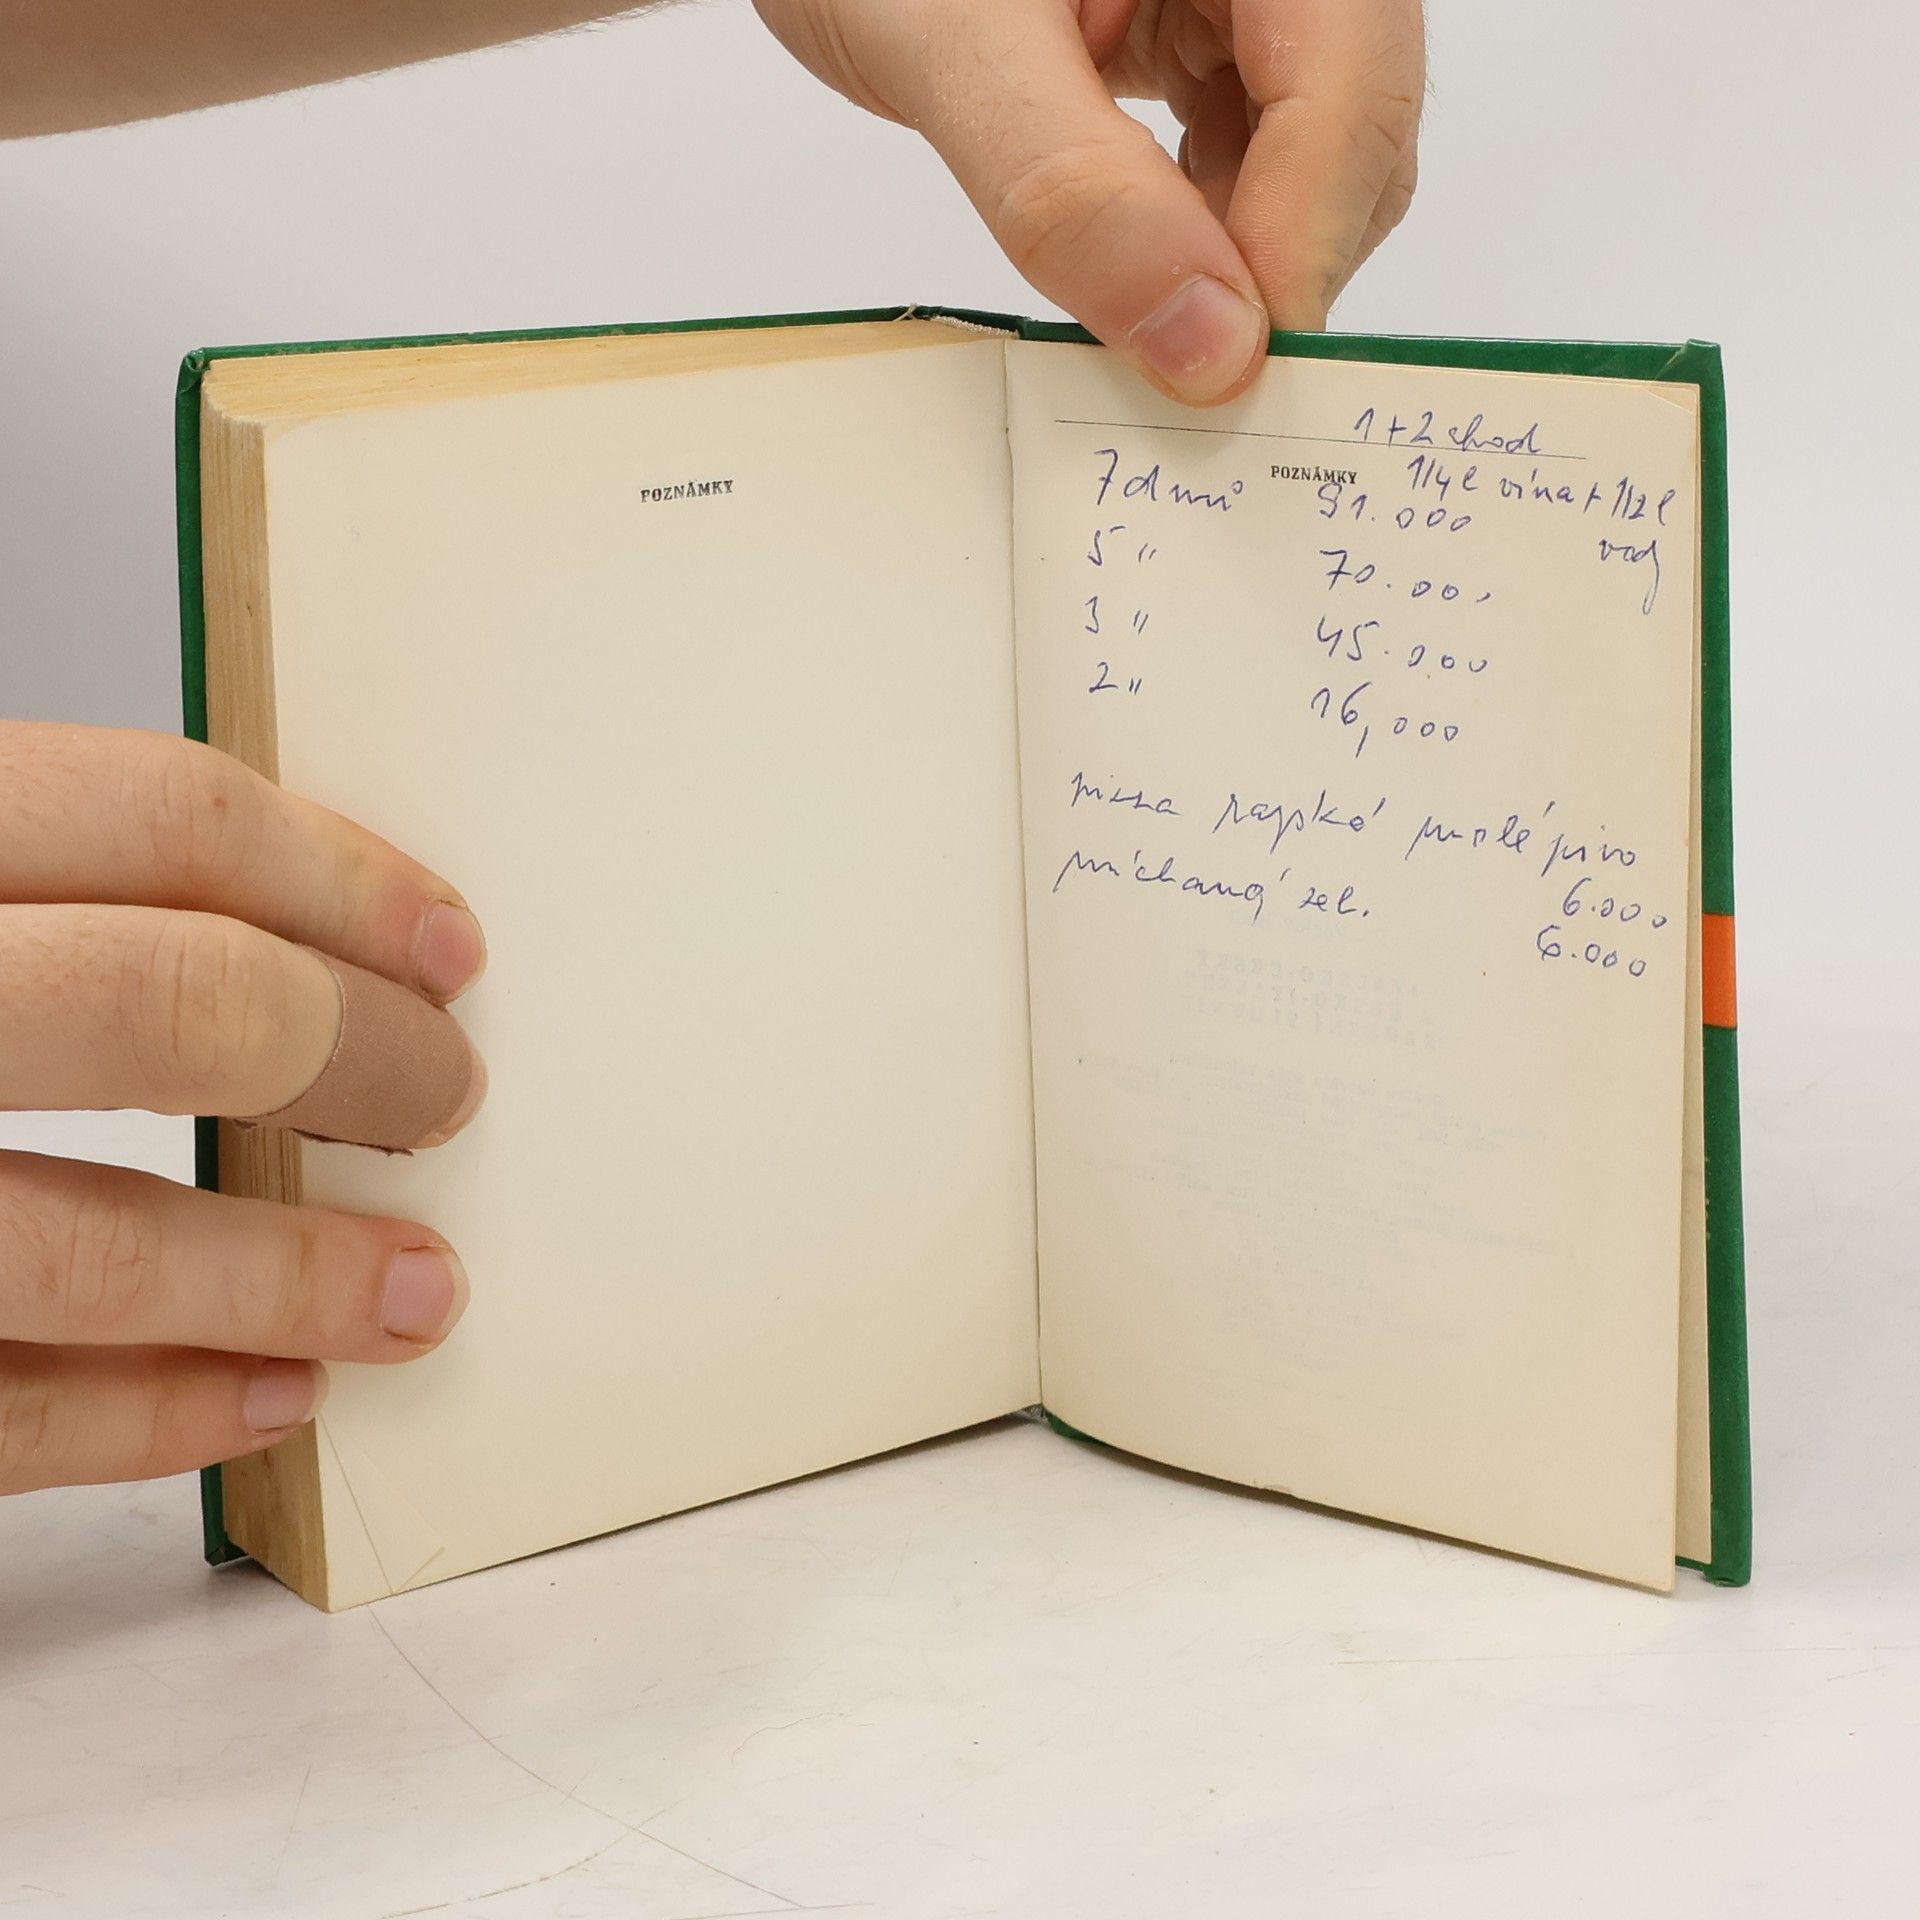 POZNÁMKY
1+2 chod
POZNÁMKY
1/4 l vína + 1/2 l
vody
7 dnů 91.000
5 " 70.000
3 " 45.000
2 " 16,000
pizza rajská malé pivo
6.000
míchaný zel.
6.000